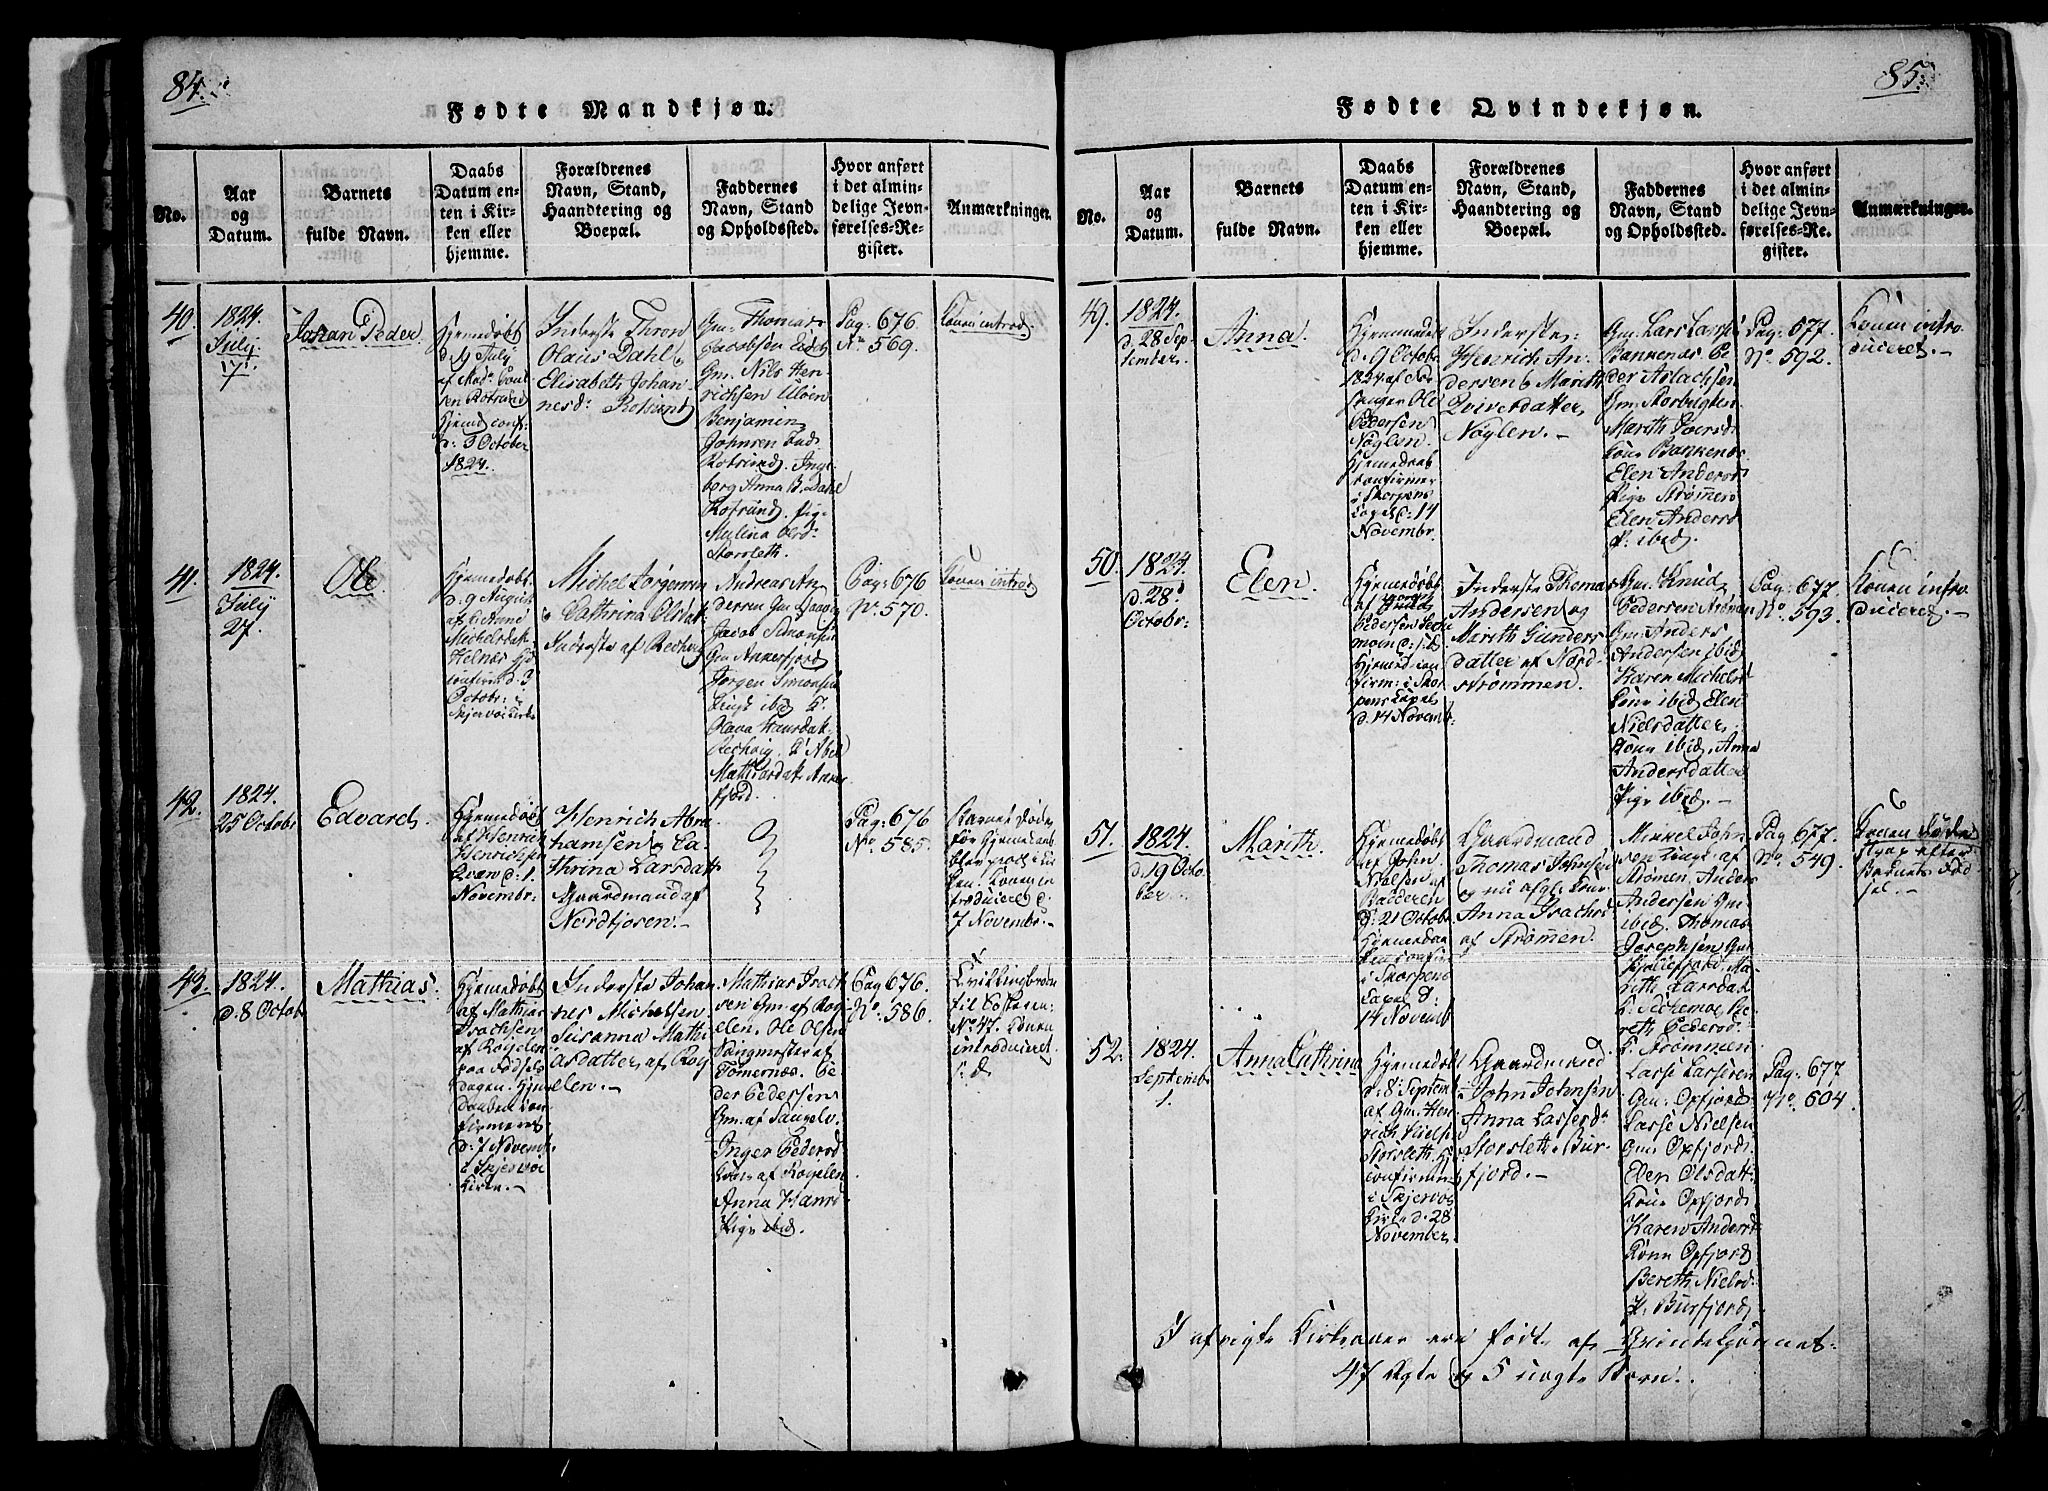 84.
Fødte Mandkjøn.
No.
Aar
og
Datum.
Barnets
fulde Navn.
Daabs
Datum en-
ten i Kir-
ken eller
hjemme.
Forældrenes
Navn, Stand,
Haandtering og
Boepæl.
Faddernes
Navn, Stand
og Opholdssted.
Hvor anført
i det almin-
delige Jevn-
førelses-Re-
gister.
Anmærkninger.
40.
1824.
July
17.
Johan Peder
Hjemedøbt
d. 9 July
Rotsund
Hjemd conf:
d: 3 October
1824.
Inderste Thron
Olaus Dahl
Elisabeth Johan
nesd: Rotsund
Gm: Thomas
Jacobsen
Gm. Nils Hen-
richsen Uløen
Benjamin
Johnsen
Rotsund. Inge-
borg Anna B. Dahl
Rotsund. Pig.
Malina Olsd:
Storsleth.
Pag: 676
No 569.
Konen introd
41.
1824.
July
27.
Ole
Hjemedøbt
d. 9 August
af
Michelsdat
Helnes Hj
confirm d. 3
Octobr: i
Skjervø Kirke
Michel Jørgensen
Cathrina Olsdat
Inderste af Rechvig
Andreas An
dersen Gm:
Jacob Simonsen
Gm
Jørgen Simonsen
ibid
Olava Hansdat
Rechvig. Abel
Mathiasdat
fjord.
Pag: 676
No. 570.
Konen introd
42.
1824.
25 Octobr
Edvard.
Hjemedøbt
af Henrich
Henrichsen
d: 1
Novembr:
Henrich Abra
hamsen Ca-
thrina Larsdatt
Gaardmand af
Nordfjosen.
Pag: 676
No 585.
Barnet døde
før Hjemedaaben
blev
Konen in
troduceret d.
7 Novembr.
43.
1824.
d. 8 Octob
Mathias.
Hjemedøbt
af Mathias
Isachsen
af Røyelen
paa Fødsels
Dagen. Hjem
Daaben con
firmeret
d: 7 Novemb
i Skjervøe
Kirke.
Inderste Johan
nes Michelsen
Susanna Mathi
asdatter af Røy
elen.
Mathias Isach
sen Gm. af Røy
elen. Ole Olsen
af
Tømernæs. Pe
der Pedersen
Gm. af
Inger Pedersd
Kone af Røyelen
Anna Hansd
Pige ibid.
Pag 676.
No. 586.
Tvillingbroder
til Søsteren
No 47. Konen
introduceret
85.
Fødte Qvindekjøn.
No.
Aar
og
Datum.
Barnets
fulde Navn.
Daabs
Datum en-
ten i Kir-
ken eller
hjemme.
Forældrenes
Navn, Stand,
Haandtering og
Boepæl.
Faddernes
Navn, Stand
og Opholdssted.
Hvor anført
i det almin-
delige Jevn-
førelses-Re-
gister.
Anmærkninger.
49.
1824.
d. 28 Sep
tember.
Anna.
Hjemmedøbt
d. 9 Octobr
1824 af
Ole
Pedersen
Nøglen.
Hjemedaab
confirmer
i Skorpens
Capel d: 14
Novembr.
Inderste
Henrich An
dersen Marith
Iversdatter
Nøglen.
Gm: Lars Larss:
Bakkenæs Pe
der Aslachsen
Gm: Storbugten
Marith Iversd
Kone Bakkenæs
Elen Andersd
Pige Strømmen
Elen Andersd
P. ibid.
Pag: 677
No. 592.
Konen intro
duceret.
50.
1824.
d. 28
Octobr:
Elen.
Hjemedøbt
af Knud
Pedersen
Hjemed: con
firm: i Skor
pens Capel
d. 14 Novemb
Inderste Thomas
Andersen og
Marith Gunders
datter af Nord-
strømmen.
Gm: Knud
Pedersen Strømen
Gm: Anders
Andersen ibid
Karen Michelsd
Kone ibid Elen
Nielsdatter
Kone ibid. Anna
Andersdatter
Pige ibid.
Pag: 677.
No. 593.
Konen intro
duceret.
51.
1824.
d. 19 Octo
ber
Marith.
Hjemedøbt
af John
Nielsen af
Badderen
d: 21 Octobr
Hjemedaa
ben confir
i Skorpens
Capel d:
14 Novemb
Gaardmand
Thomas Johnsen
og nu afg: Kone
Anna Isachsd
af Strømen.
Mikkel John
sen
Strømen. Anders
Andersen Gm
ibid. Thomas
Josephsen
Larsdat
Be
reth Pedersd:
Strømmen
Pag 677.
No. 549.
Konen døde
strax efter
Barnets Fød
sel.
52.
1824.
Septembr
1.
Anna Cathrina
Hjemedøbt
d. 8 Septemb
af Gm: Hen
rich Niels:
Storsleth. Hj
confirm
i Skjervøe
Kirke d. 28
November
Gaardmand
John Johnsen
Anna Lassesd:
Storsleth Bur
fjord.
Lasse Lassesen
Gm: Opfjord
Lasse Nielsen
Gm: Opfjord
Elen Olsdatt
Kone Opfjord
Karen Andersd
Kone Opfjord
Bereth Nielsd:
P. Burfjord
Pag: 677
No. 604.
I afvigte Kirkeaar ere født af Qvindekjønnet:
47 ægte og 5 uægte Børn.